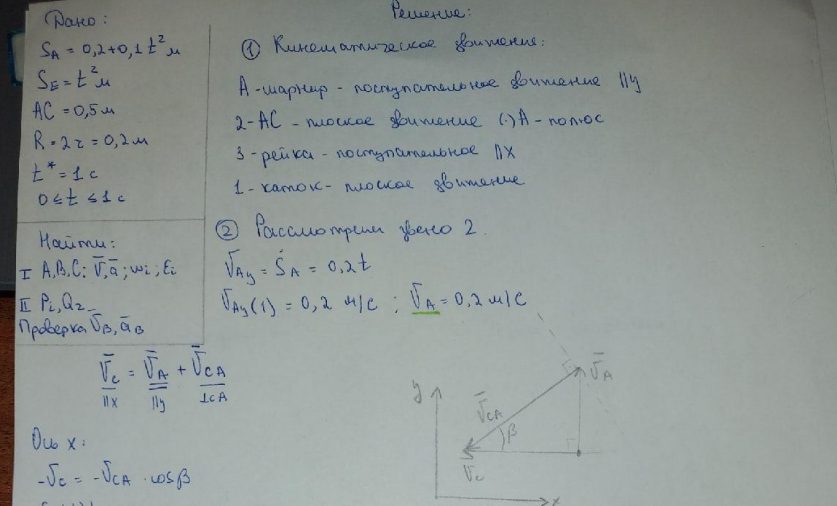 Дано:
S_A = 0,2+0,1 t² м
S_E = t² м
AC = 0,5 м
R = 2r = 0,2 м
t* = 1 с
0 ≤ t ≤ 1 с
Найти:
I A,B,C; V̄,ā; ωi; Ei
II Pi, Q2
Проверка V̄_B, ā_B
Решение:
① Кинематическое движение:
А-шарнир - поступательное движение ||y
2-AC - плоское движение (·)А-полюс
3-рейка-поступательное ||X
1-каток-плоское движение
② Рассмотрим звено 2.
V_Ay = Ṡ_A = 0,2t
V_Ay(1) = 0,2 м/с ; V_A = 0,2 м/с
V̄_c = V̄_A + V̄_CA
||x ||y ⊥CA
Ось x:
-V_c = -V_CA · cosβ
y
V̄_CA
V̄_A
β
V̄_c
x